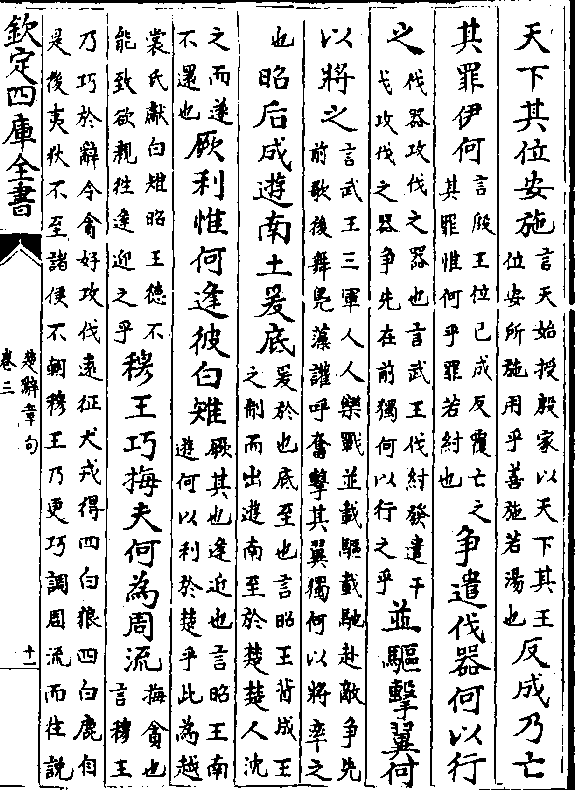 天下其位安施言天始授殷家以天下其王位安所施用乎善施若湯也反成乃亡
其罪伊何言殷王位已成反覆亡之其罪惟何乎罪若紂也争遣伐器何以行
之伐器攻伐之器也言武王伐紂發遣干戈攻伐之器争先在前獨何以行之乎並驅擊翼何
以將之言武王三軍人人樂戰並載驅載馳赴敵争先前歌後舞鳬藻讙呼奮擊其翼獨何以將率之
也昭后成遊南土爰底爰於也底至也言昭王背成王之制而出遊南至於楚楚人沈
之而遂不還也厥利惟何逢彼白雉厥其也逢迎也言昭王南遊何以利於楚乎此為越
裳氏獻白雉昭王德不能致欲親往逢迎之乎穆王巧梅夫何為周流梅貪也言穆王
乃巧於辭令貪好攻伐遠征犬戎得四白狼四白鹿自是後夷狄不至諸侯不朝穆王乃更巧調周流而往說
欽定四庫全書
楚辭章句
卷三
十一